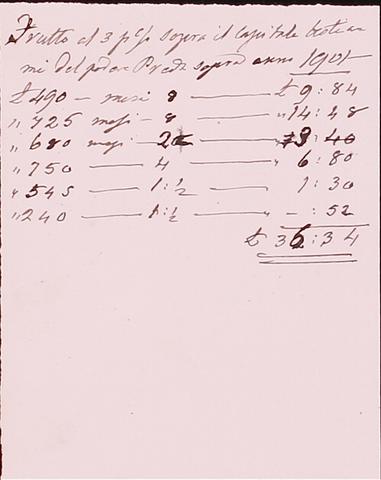 Frutto al 3 p% sopra il Capitale bestia
mi del podere Preda sopra anno 1901
£ 490 — mesi 8 — £ 9:84
" 725 mesi — 8 — " 14:48
" 680 mesi — 2 — " 3:40
" 750 — 4 — " 6:80
" 545 — 1:½ — 1:30
" 240 — 1:½ — " –:52
£ 36:34